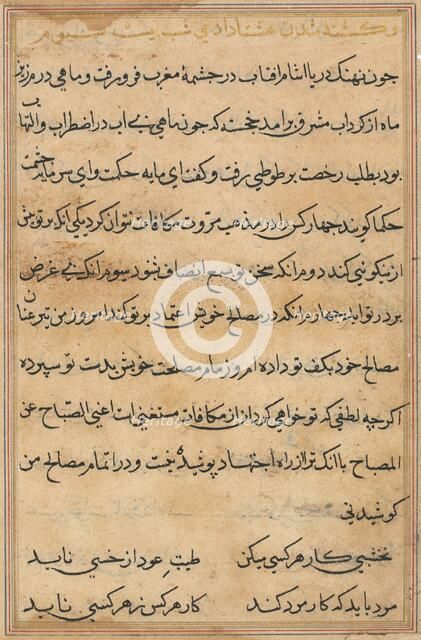 و کشته شدن عشاق دادی شب بیست سیوم
چون نهنک دریا اشام افتاب در چشمه مغرب فرو رفت و ماهی در مرزین
ماه از کرداب مشرق برامد خجسته که چون ماهی بی اب در اضطراب و التهاب
بود بطلب رخصت بر طوطی رفت و کفت ای مایه حکمت و ای سرمایه حشمت
حکما کویند چهار کس را در مذهب مروت مکافات نتوان کرد یکی انکه بر تو پیش
از نیکوئی کند دوم انکه سخن تو بسمع انصاف شنود سوم انکه بی غرض
بر در تو اید چهارم انکه در مصالح خویش اعتماد بر تو کند امروز من نیز عنان
مصالح خود بکف تو داده ام و زمام مصلحت خویش بدست تو سپرده
اکرچه لطفی که تو خواهی کرد از ان مکافات مستغنی است اغنی الصباح عن
المصباح با انکه ترا از راه اجتهاد پوشیده نیست و در اتمام مصالح من
کوشیدنی
نخشبی کار هر کسی میکن طیب عود از خسی ناید
مرد باید که کار مرد کند کار هر کس ز هر کسی ناید
Heritage